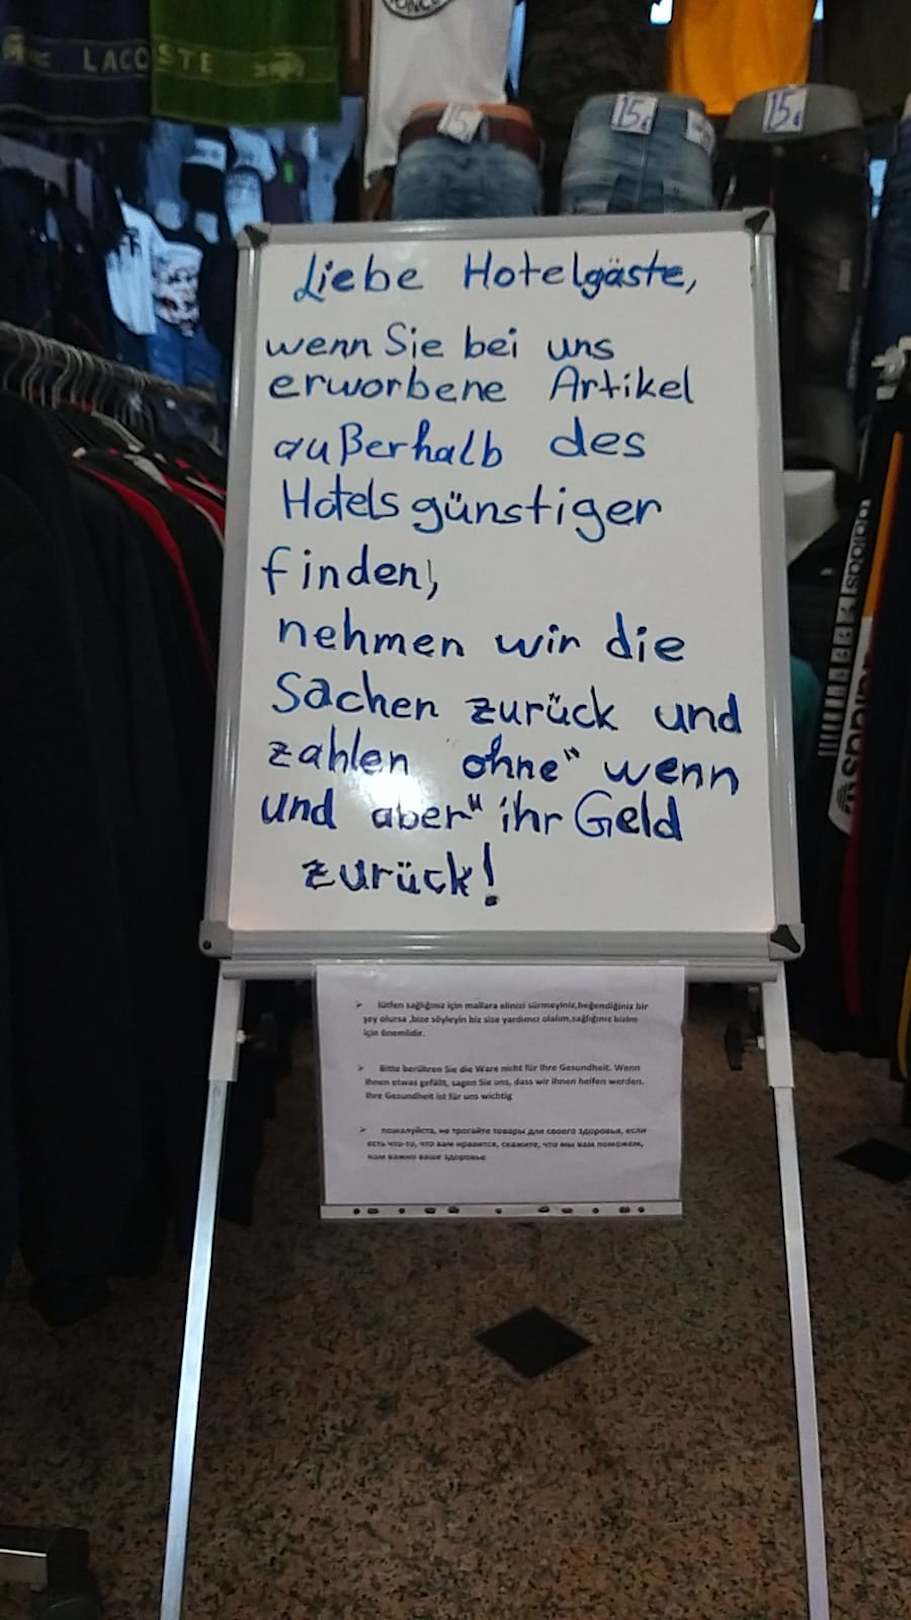 LACOSTE
15€
15€
15€
Liebe Hotelgäste,
wenn Sie bei uns
erworbene Artikel
außerhalb des
Hotels günstiger
finden,
nehmen wir die
Sachen zurück und
zahlen "ohne" wenn
und aber" ihr Geld
zurück!
➢ lütfen sağlığınız için mallara elinizi sürmeyiniz,beğendiğiniz bir
şey olursa ,bize söyleyin biz size yardımcı olalım,sağlığınız bizim
için önemlidir.
➢ Bitte berühren Sie die Ware nicht für Ihre Gesundheit. Wenn
Ihnen etwas gefällt, sagen Sie uns, dass wir Ihnen helfen werden.
Ihre Gesundheit ist für uns wichtig
➢ пожалуйста, не трогайте товары для своего здоровья, если
есть что-то, что вам нравится, скажите, что мы вам поможем,
нам важно ваше здоровье
adidas